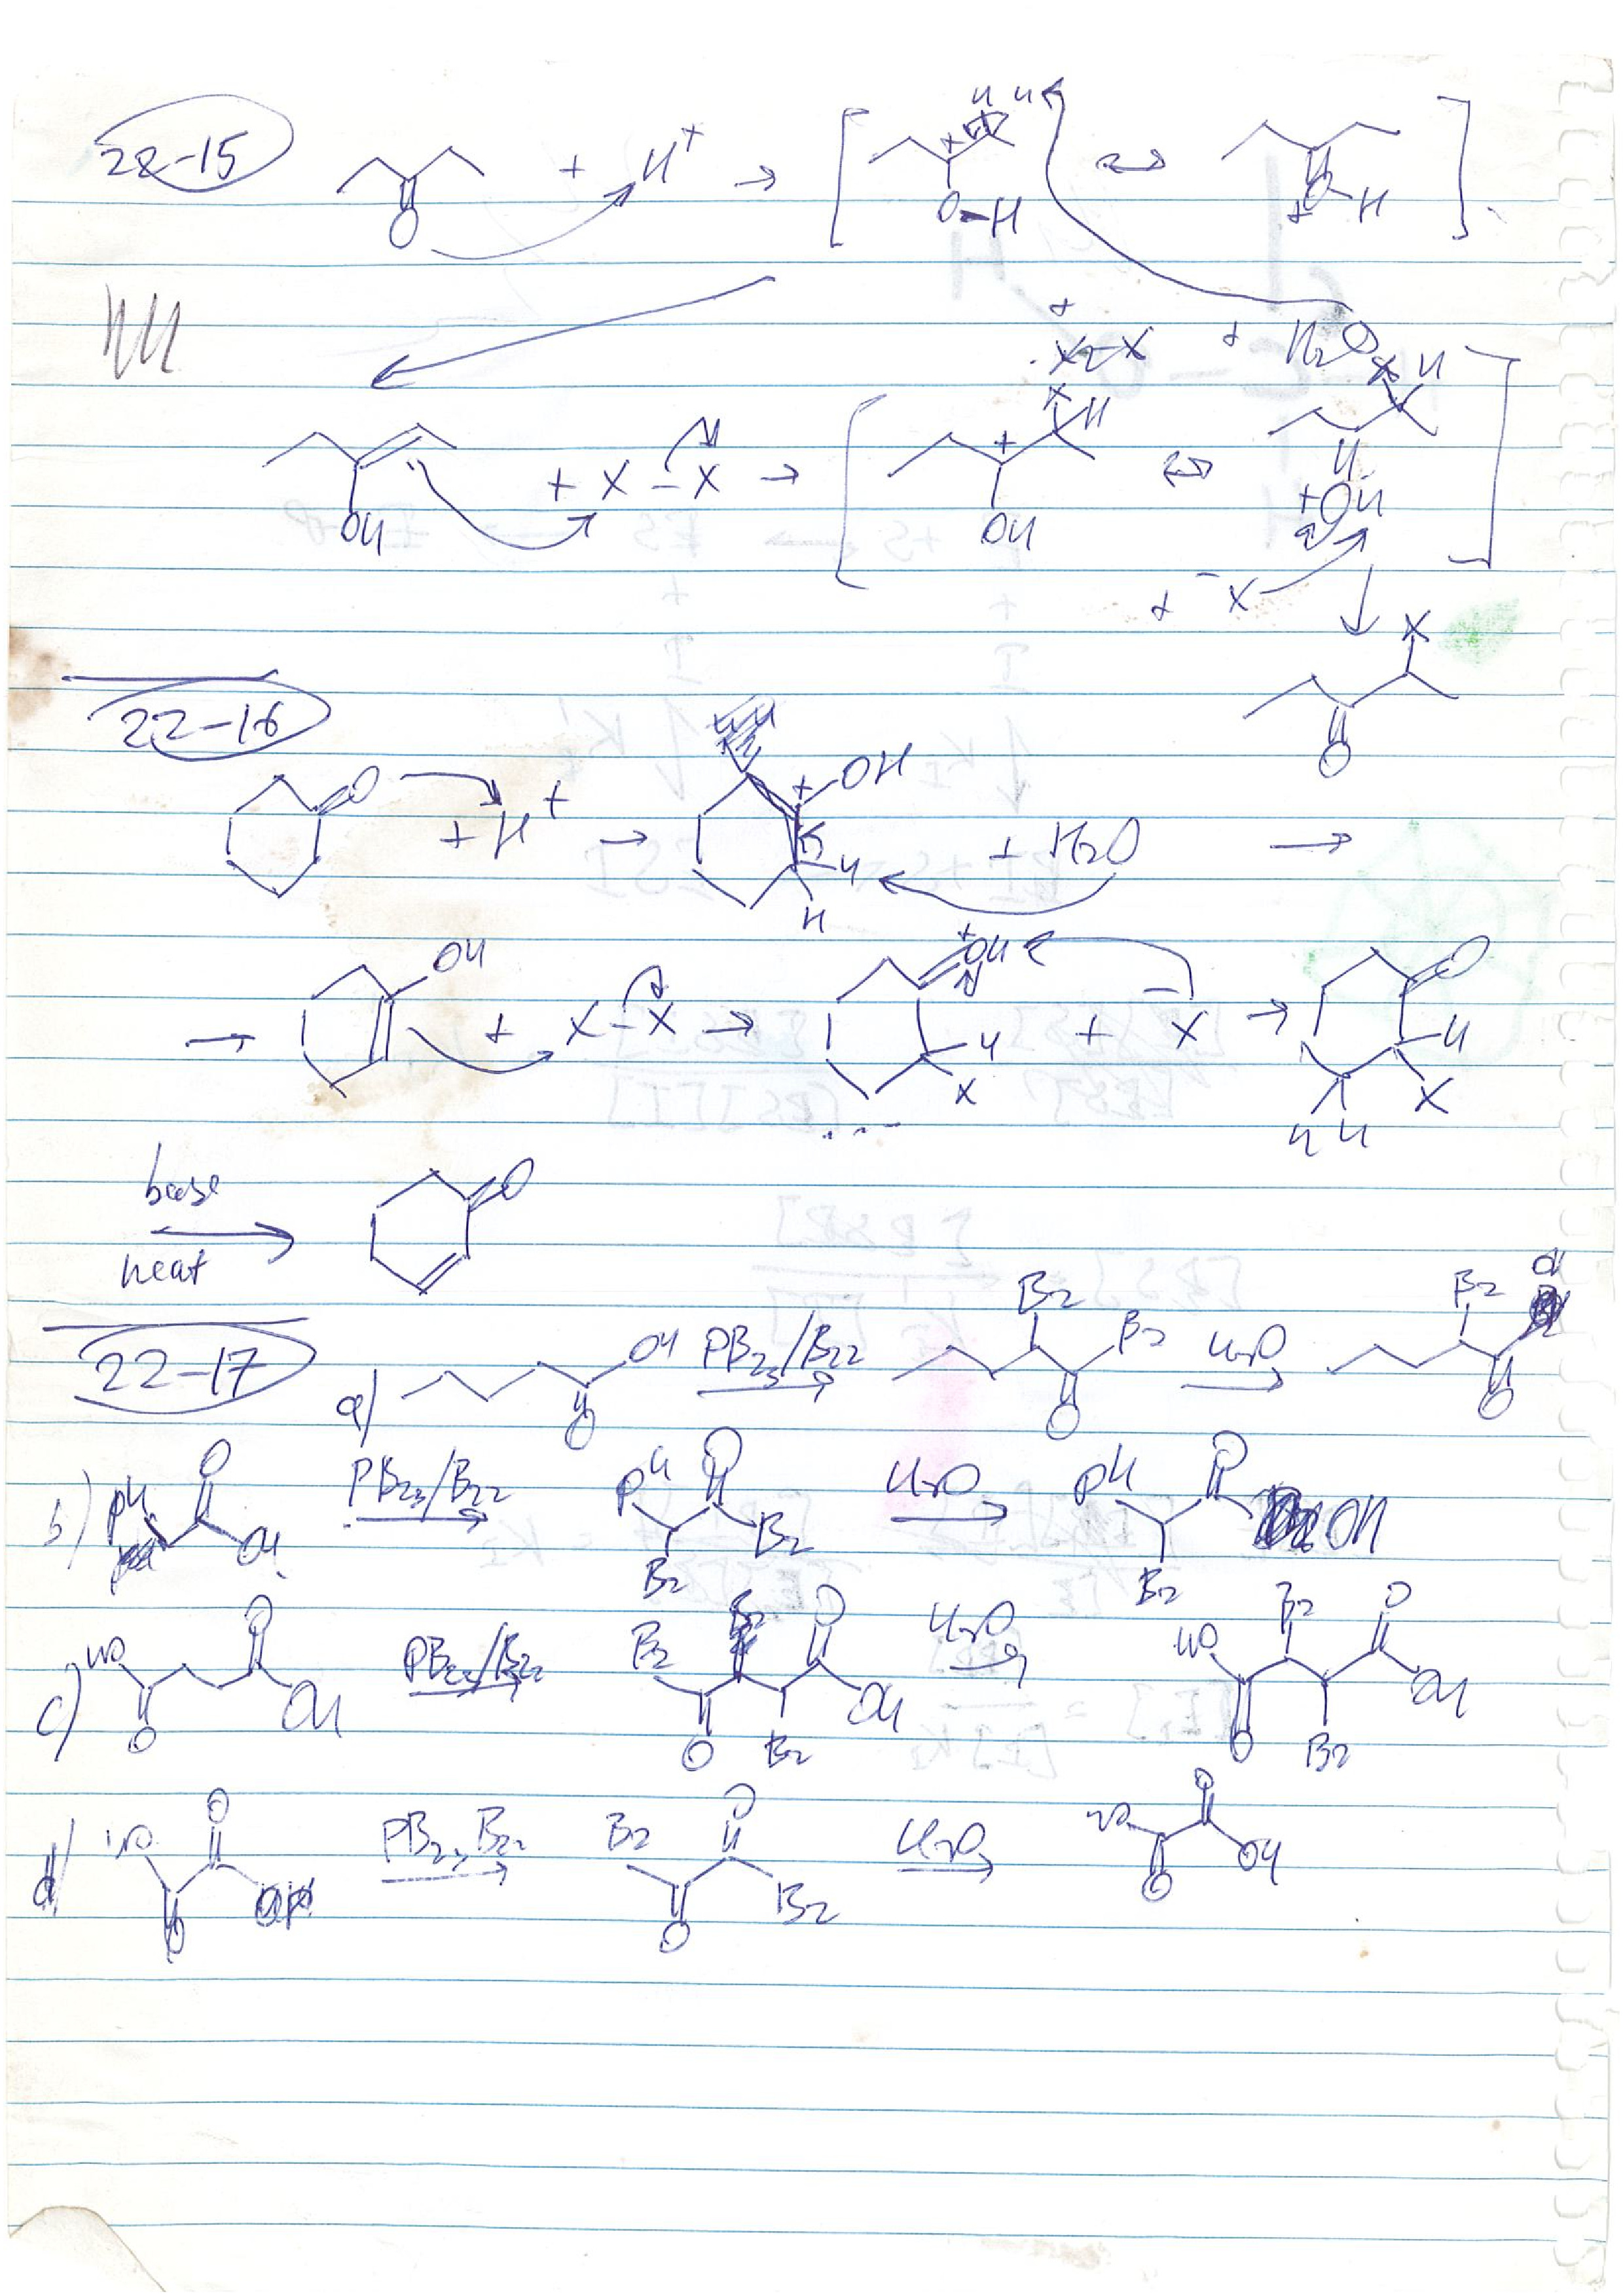 22-15
O + H+ → [ + H H O-H ↔ O-H + ]
+ X-X + H2O
OH + X-X → [ + X H OH ↔ X H +OH ]
+ -X
X
O
22-16
O + H+ → + OH H H + H2O →
→ OH + X-X → +OH H X + -X → O H X H H
base
heat
O
22-17
a) OH O PBr3/Br2 Br Br O H2O Br OH O
b) PH O OH PBr3/Br2 PH O Br Br H2O PH O Br OH
c) HO O O OH PBr3/Br2 Br O Br O OH H2O HO O Br Br O OH
d) HO O O OH PBr3 Br2 Br O O Br H2O HO O O OH